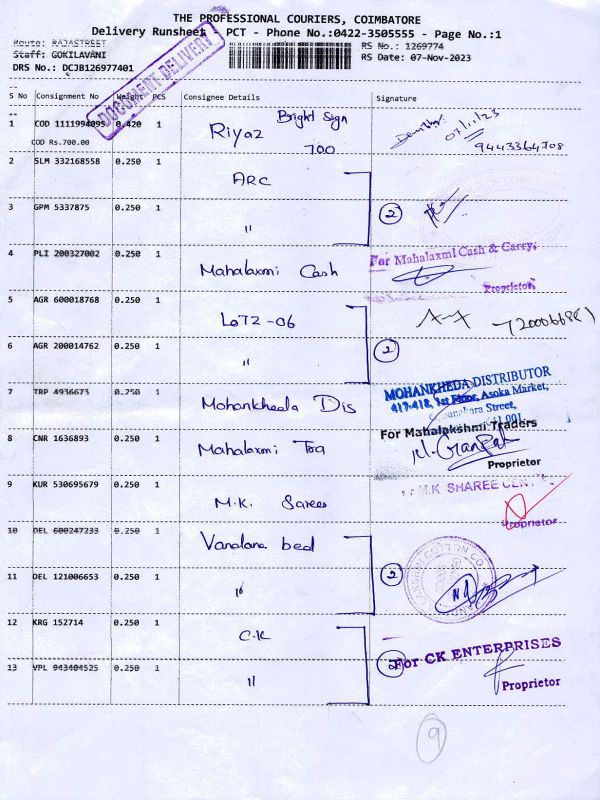 THE PROFESSIONAL COURIERS, COIMBATORE
Delivery Runsheet - PCT - Phone No.:0422-3505555 - Page No.:1
Route: RAJASTREET
RS No.: 1269774
Staff: GOKILAVANI
RS Date: 07-Nov-2023
DRS No.: DCJB126977401
DOCUMENT DELIVERY
S No Consignment No Weight PCS Consignee Details Signature
1 COD 1111994095 0.420 1 Riyaz Bright Sign 07/11/23
COD Rs.700.00 700 9443364708
2 SLM 332168558 0.250 1 ARC
3 GPM 5337875 0.250 1 " 2
4 PLI 200327002 0.250 1 Mahalaxmi Cash For Mahalaxmi Cash & Carry,
Proprietor
5 AGR 600018768 0.250 1 LOTZ-06
6 AGR 200014762 0.250 1 " 2
7 TRP 4936673 0.250 1 Mohankheda Dis MOHANKHEDA DISTRIBUTOR
417-418, 1st Floor, Asoka Market,
Street,
8 CNR 1636893 0.250 1 Mahalaxmi Tra For Mahalakshmi Traders
Proprietor
9 KUR 530695679 0.250 1 M.K. Sarees M.K SHAREE
Proprietor
10 DEL 600247233 0.250 1 Vandana bed
11 DEL 121006653 0.250 1 " 2
12 KRG 152714 0.250 1 C.K
For CK ENTERPRISES
13 VPL 943404525 0.250 1 " 2
Proprietor
9